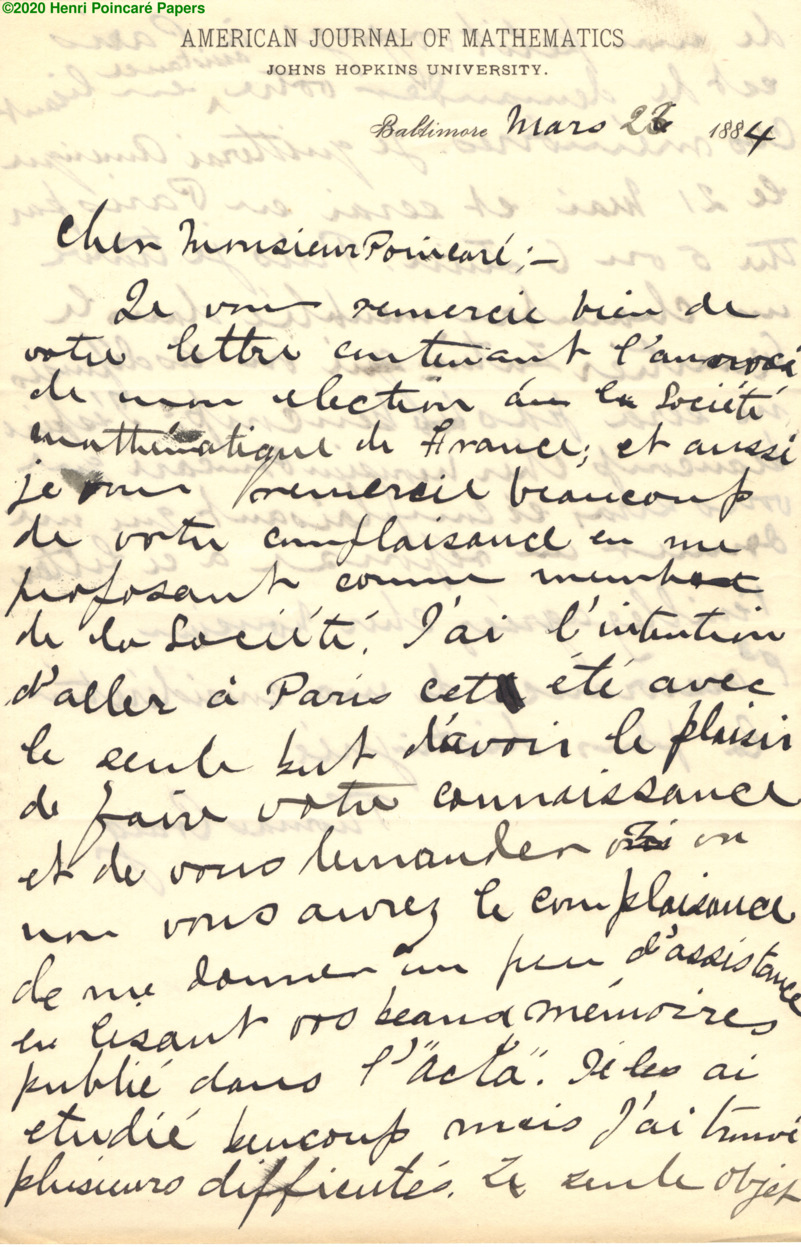 ©2020 Henri Poincaré Papers
AMERICAN JOURNAL OF MATHEMATICS
JOHNS HOPKINS UNIVERSITY.
Baltimore Mars 1884
Cher Monsieur Poincaré;—
Je vous remercie bien de
votre lettre contenant l'
de mon election la Société
mathématique de France; et aussi
je vous remercie beaucoup
de votre complaisance en me
proposant comme membre
de la Société. J'ai l'intention
d'aller à Paris cet été avec
le seule but d'avoir le plaisir
de faire votre connaissance
et de vous demander oui ou
non vous aurez le complaisance
de me donner un peu d'assistance
en lisant vos beaux mémoires
publié dans l'"Acta". Je les ai
etudié beucoup mais J'ai trouvé
plusieurs difficultés. Le seule objet